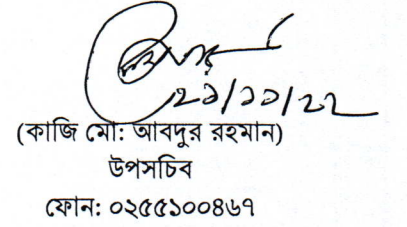 ২১/১১/২২
(কাজি মো: আবদুর রহমান)
উপসচিব
ফোন: ০২৫৫১০০৪৬৭